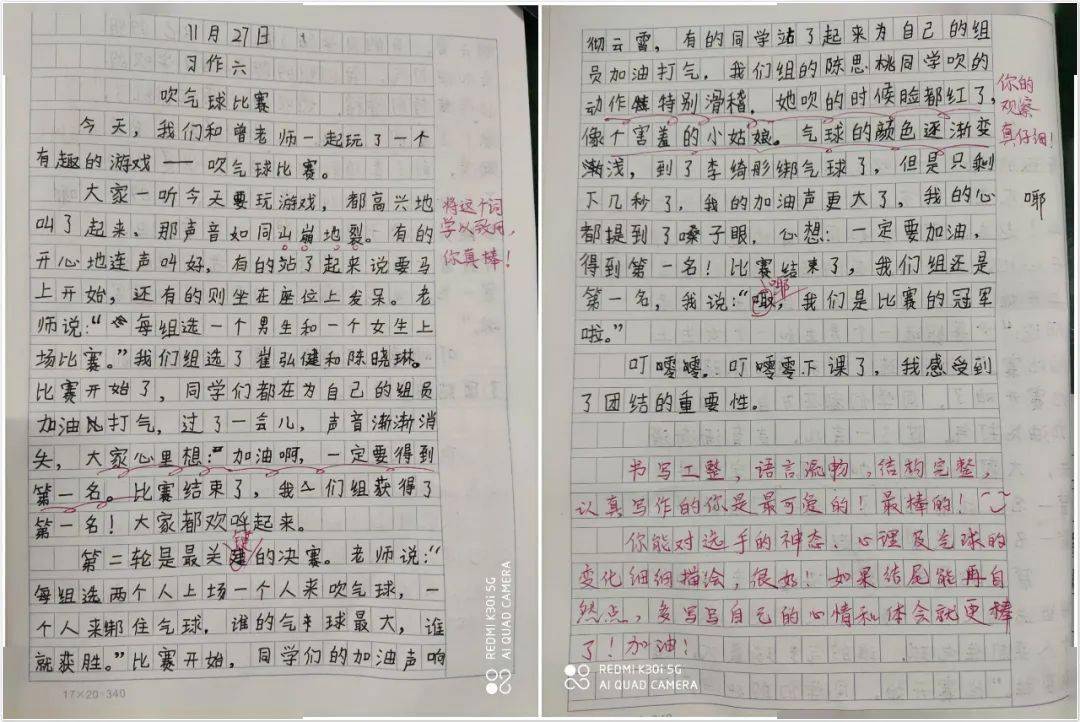 11月27日
习作六
吹气球比赛
今天，我们和曾老师一起玩了一个
有趣的游戏——吹气球比赛。
大家一听今天要玩游戏，都高兴地
叫了起来、那声音如同山崩地裂。有的
开心地连声叫好，有的站了起来说要马
上开始，还有的则坐在座位上发呆。老
师说：“每组选一个男生和一个女生上
场比赛。”我们组选了崔弘健和陈晓琳。
比赛开始了，同学们都在为自己的组员
加油打气，过了一会儿，声音渐渐消
失，大家心里想：“加油啊，一定要得到
第一名。比赛结束了，我们组获得了
第一名！大家都欢呼起来。
第二轮是最关键的决赛。老师说：“
每组选两个人上场一个人来吹气球，一
个人来绑住气球，谁的气球最大，谁
就获胜。”比赛开始，同学们的加油声响
将这个词
学以致用，
你真棒！
17×20=340
REDMI K30i 5G
AI QUAD CAMERA
彻云霄，有的同学站了起来为自己的组
员加油打气，我们组的陈思桃同学吹的
动作特别滑稽，她吹的时候脸都红了，
像个害羞的小姑娘。气球的颜色逐渐变
浅，到了李绮彤绑气球了，但是只剩
下几秒了，我的加油声更大了，我的心
都提到了嗓子眼，心想：一定要加油，
得到第一名！比赛结束了，我们组还是
第一名，我说：“耶，我们是比赛的冠军
啦。”
叮呤呤，叮呤呤下课了，我感受到
了团结的重要性。
你的
观察
真仔细！
耶
书写工整，语言流畅，结构完整，
认真写作的你是最可爱的！最棒的！
你能对选手的神态、心理及气球的
变化细细描绘，很好！如果结尾能再自
然点，多写写自己的心情和体会就更棒
了！加油！
REDMI K30i 5G
AI QUAD CAMERA